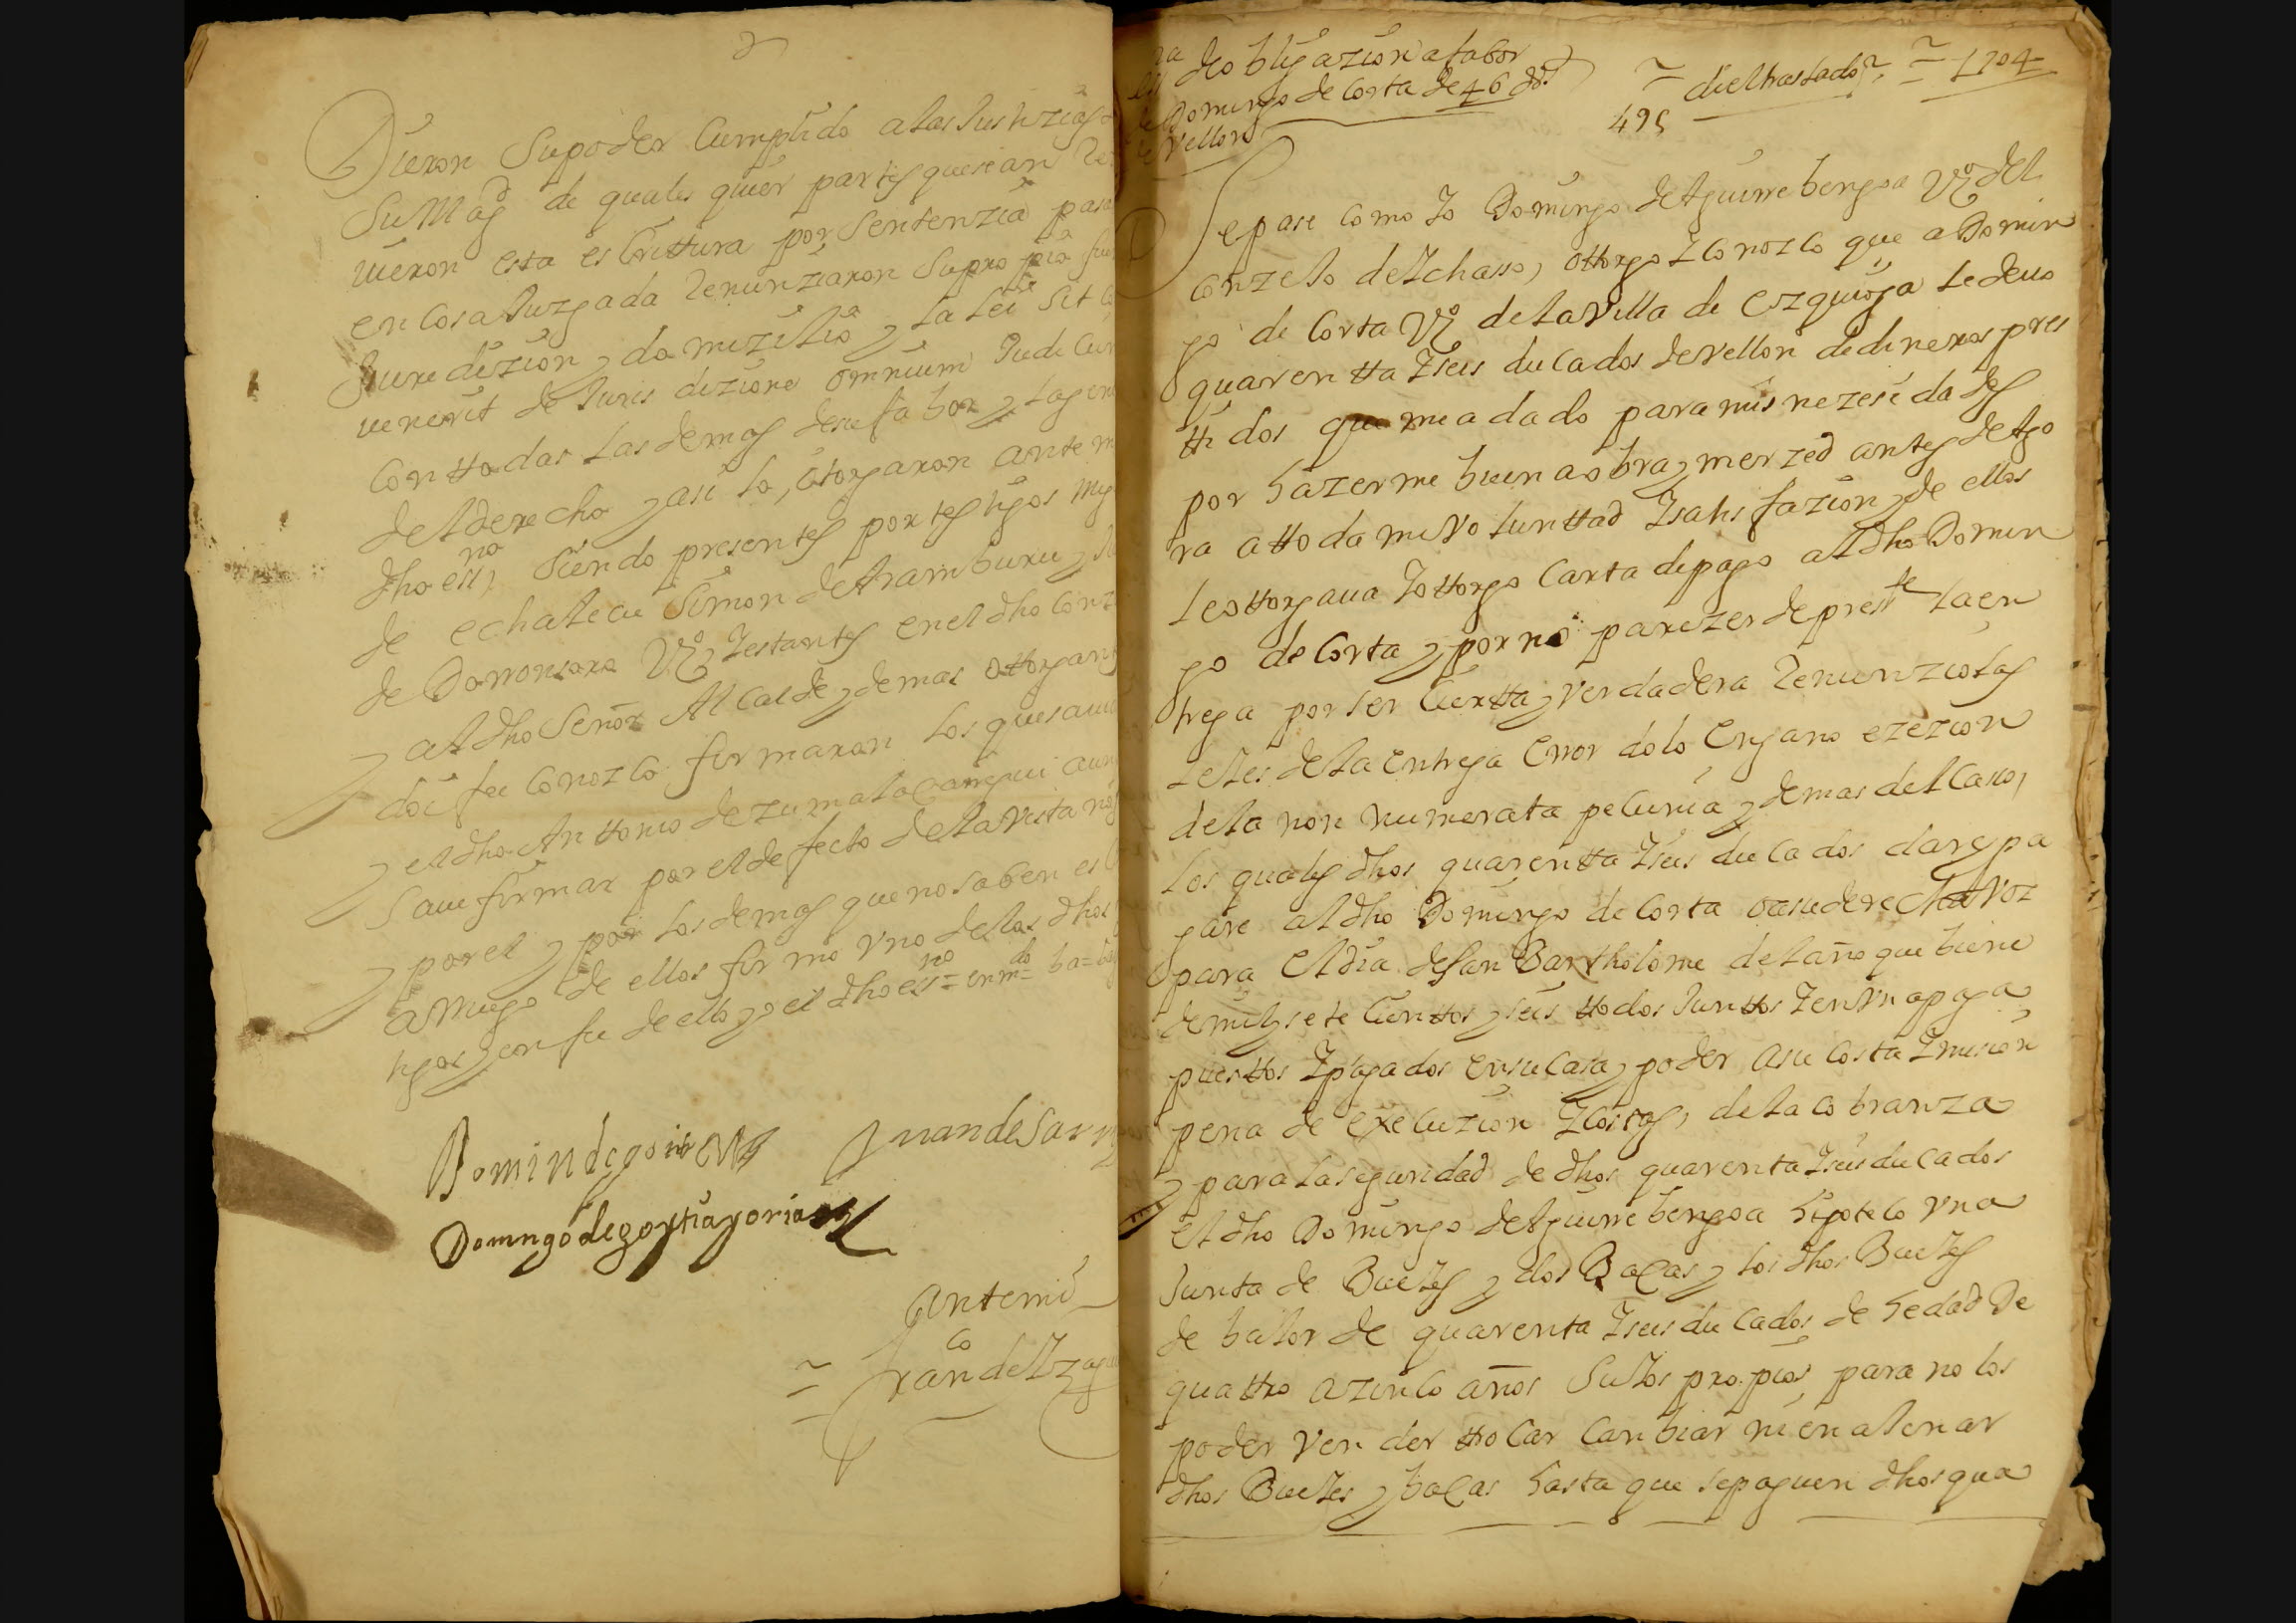 Dieron Supoder Cumplido alas Justizias
SuMagd de quales quier partes quesean
uieron esta escrittura por sentenzia pasa
en Cosa Juzgada Renunziaron Supro pio fue
Juredizion y domizilio y la lei Sit Co
uenerit de Juris dizione omnium Judicun
Con ttodas las demas desufabor y lagen
del derecho y asi lo, otorgaron ante m
dho essno siendo presentes por testigos Mig
de echalecu Simon de Aramburu y
de Dorronsoro Vos Yestantes enel dho Conz
y al dho Señor Alcalde y demas ottorgan
doi fee Conozco firmaron los quesauia
y eldho Anttonio de zumalacarregui aun
Saue firmar por el defecto dela vista no
y por el y por los demas que no saben es
a Ruego de ellos firmo vno delos dhos
tigos y en fee de ello yo el dho essno = enmdo = ba =
Domin de goi
Juan de Sarr
Domngo de goytiagoria
Antemi
= Franco de Vzagu
de obligazion a fabor
de Domingo de Corta de 46 ds
de Vellon
= diel trastado = 1704
495
Sepase como Yo Domingo de Aguirrebengoa Vo del
Conzejo de Ychasso, ottorgo Y Conozco que a Domin
go de Corta Vo dela Villa de ezquioga le deuo
quarentta Yseis ducados de vellon de dineros pres
ttidos que me a dado para mis nezesidades
por hazerme buena obra y merzed antes de Ago
ra a ttoda mi Voluntтad Ysatisfazion y de ellos
le ottorgaua Yottorgo Carta de pago al dho Domin
go de Corta y por no parezer de preste la en
trega por ser Ciertta y verdadera Renunzio las
leies dela entrega error dolo engano ezezion
dela non numerata pecunia y demas del Caso,
los quales dhos quarentta Yseis ducados dare y pa
gare al dho Domingo de Corta o a su derecha voz
para el dia de San Bartholome del año que biene
de mil y sete Cienttos y seis ttodos Junttos Yen vna paga
puesttos Ypagados en su Casa y poder a su Costa Ymision
pena de execuzion Y Costas, dela cobranza
y para la seguridad de dhos quarenta Yseis ducados
el dho Domingo de Aguirrebengoa hipoteco vna
Junta de Bueyes y dos Bacas y los dhos Bueyes
de balor de quarenta Yseis ducados de hedad De
quattro a zinco años Suios propios para no los
poder vender ttrocar Canbiar ni enalenar
dhos Bueyes y bacas hasta que sepaguen dhos qua